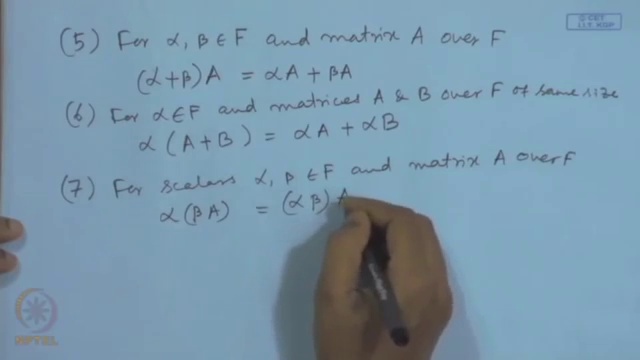 (5) For α, β ∈ F and matrix A over F
(α+β)A = αA + βA
(6) For α∈F and matrices A & B over F of same size
α(A+B) = αA + αB
(7) For scalars α, β ∈ F and matrix A over F
α(βA) = (αβ) A
NPTEL